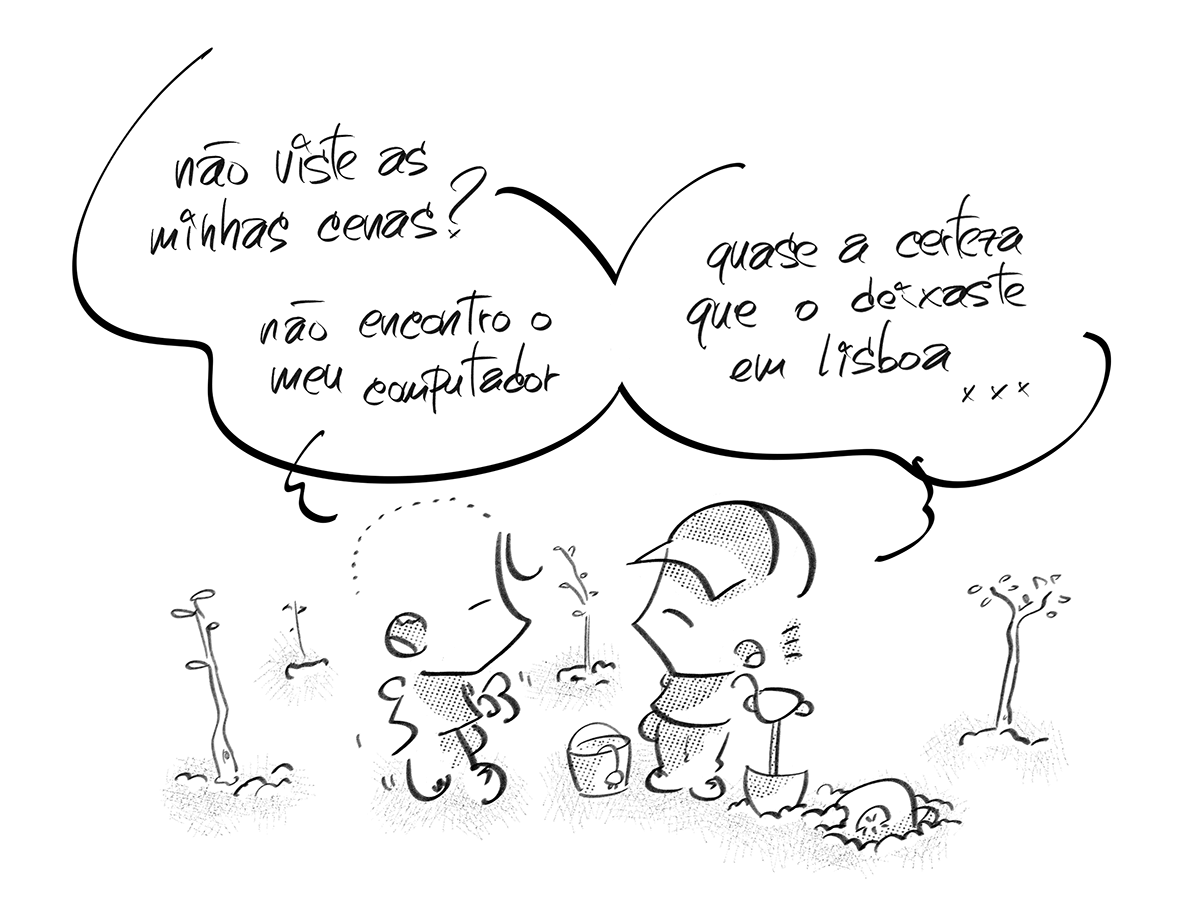 não viste as
minhas cenas?
não encontro o
meu computador
quase a certeza
que o deixaste
em lisboa
...